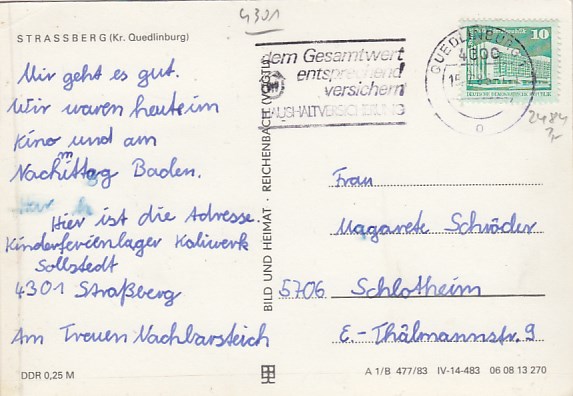 4301
STRASSBERG (Kr. Quedlinburg)
Mir geht es gut.
Wir waren heute im
Kino und am
Nachmittag Baden.
Hier ist die Adresse.
Kinderferienlager Kaliwerk
Sollstedt
4301 Straßberg
Am Treuen Nachbarsteich
DDR 0,25 M
BILD UND HEIMAT · REICHENBACH (VOGTL)
dem Gesamtwert
entsprechend
versichern
HAUSHALTVERSICHERUNG
QUEDLINBURG
4300
10
DEUTSCHE DEMOKRATISCHE REPUBLIK
2484
Frau
Magarete Schröder
5706 Schlotheim
E.-Thälmannstr. 9
A 1/B 477/83 IV-14-483 06 08 13 270